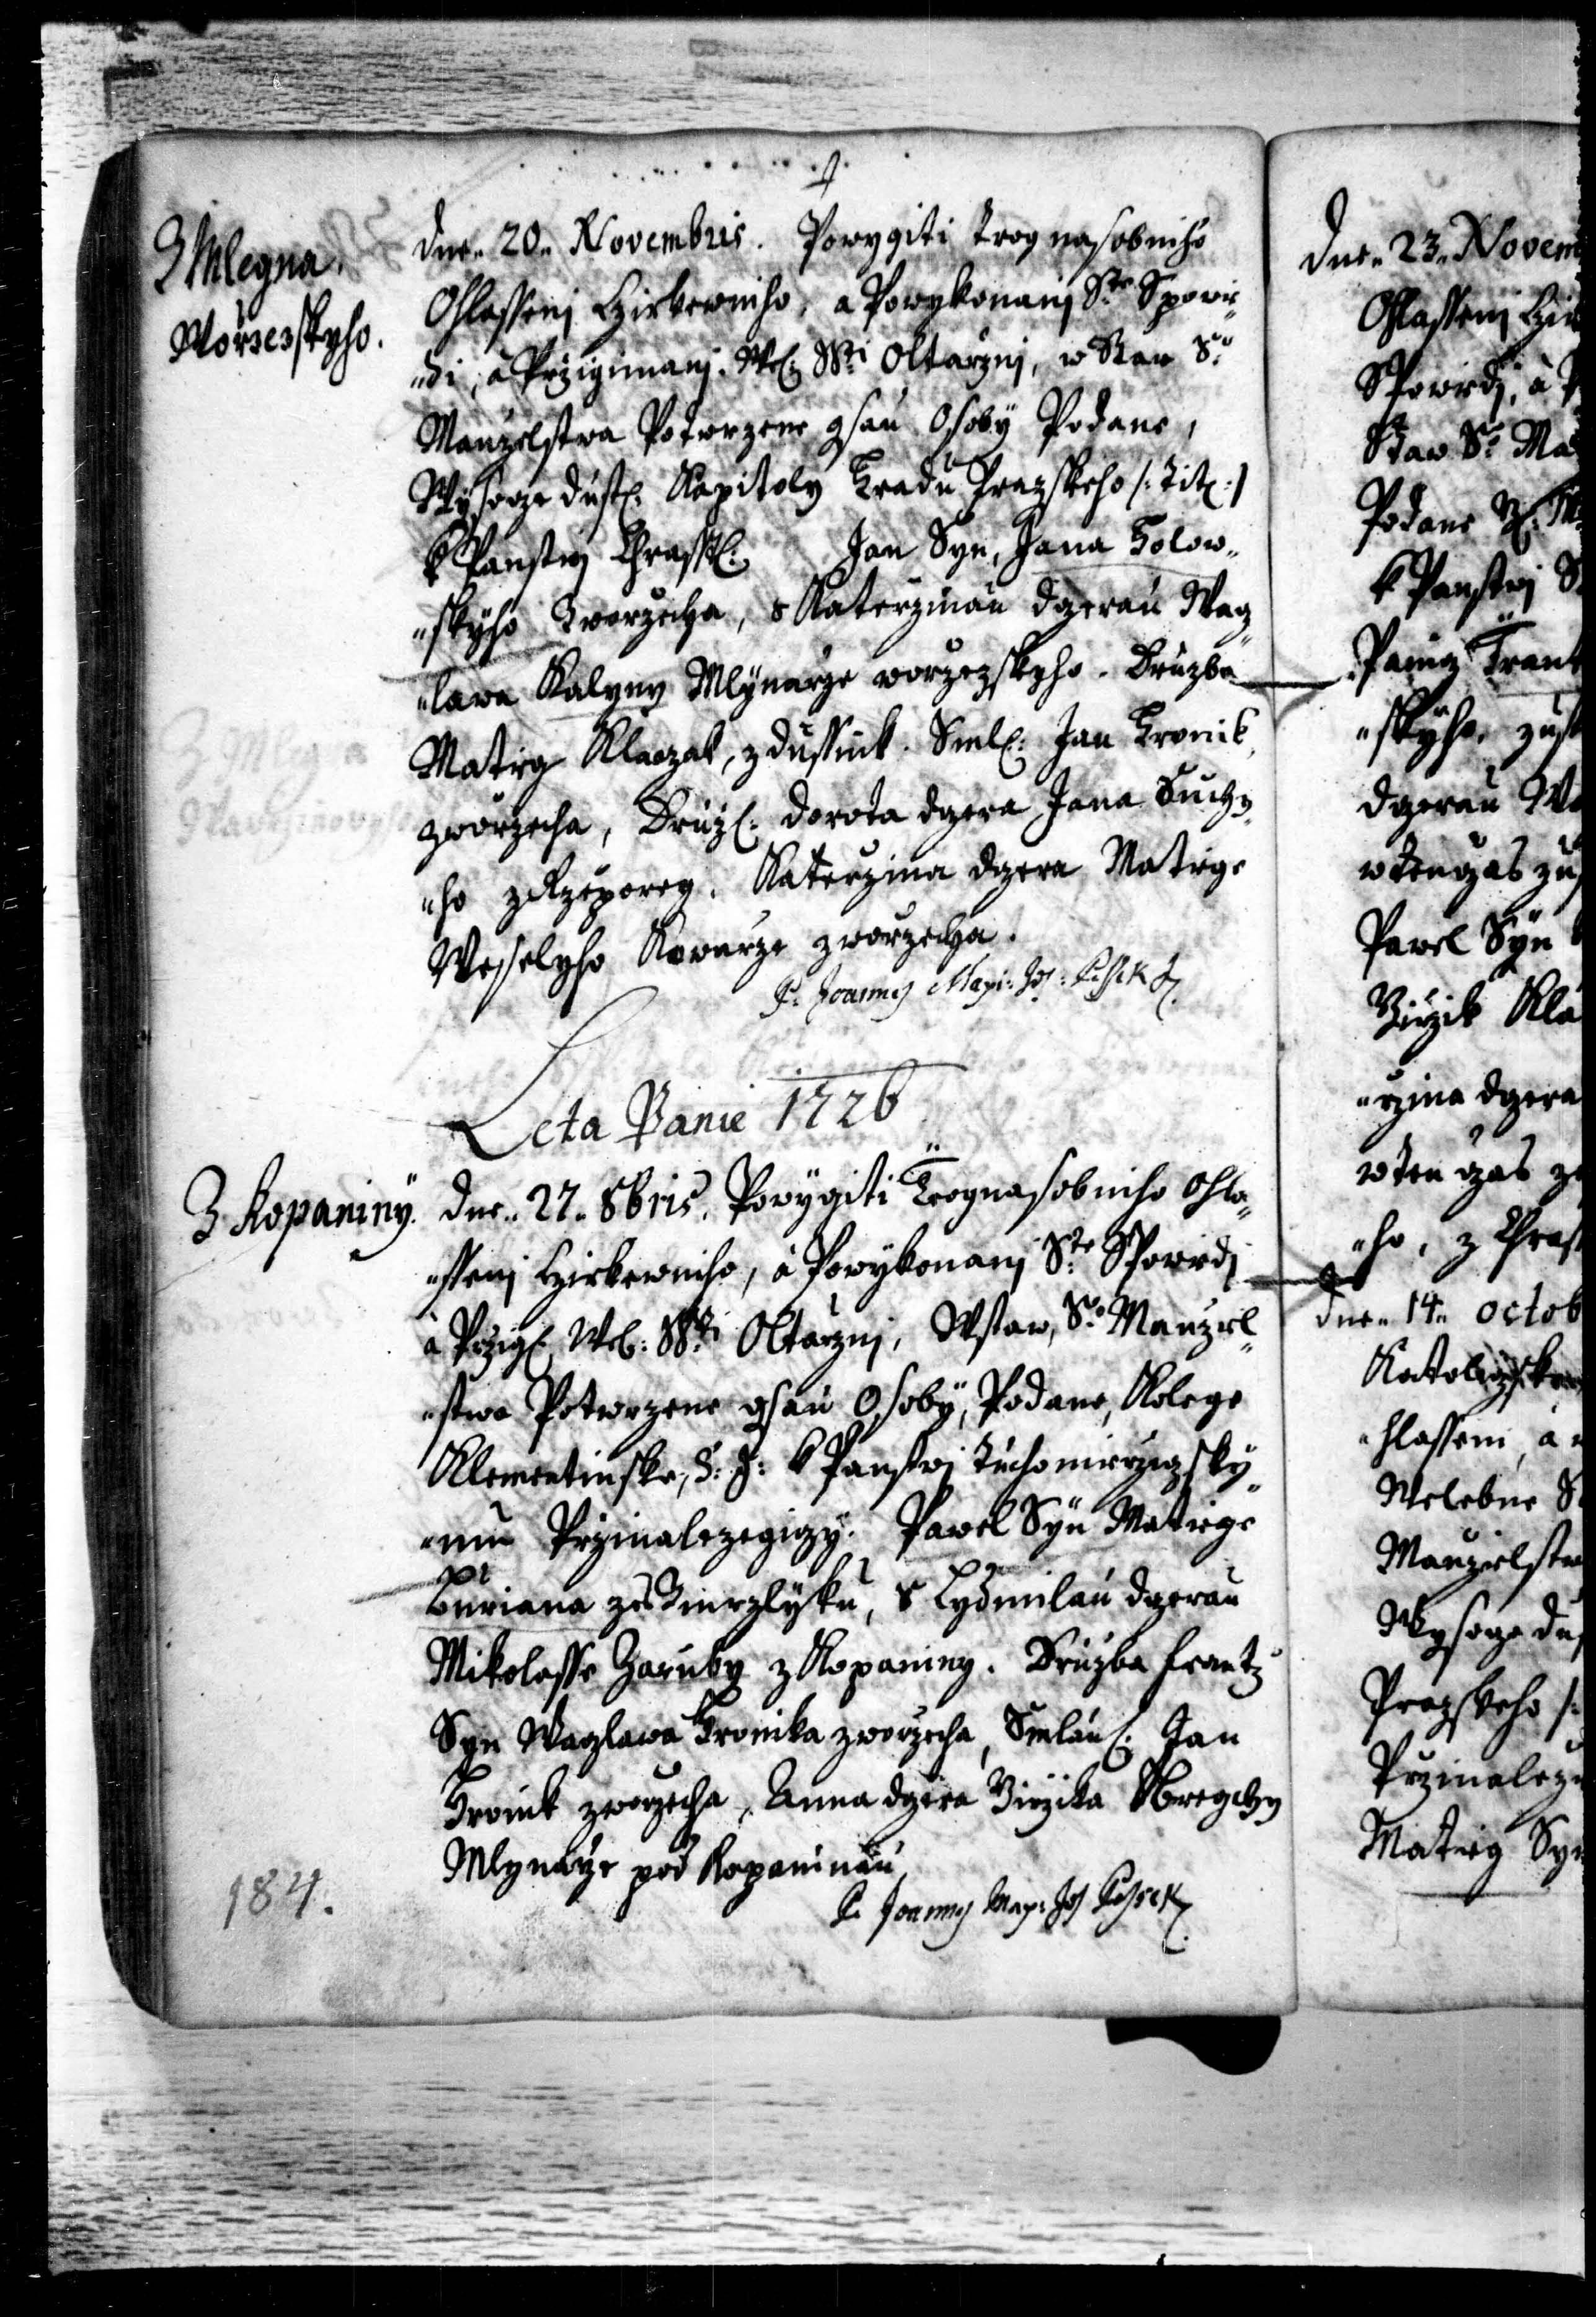 Z Mlegna
Worzeskyho.
Dne. 20. Novembris. Powygiti Trognasobniho
Ohlasseni Czirkewniho, a Powykonanj Ste Spowie
"di, a Przigimanj. Wel: Swti Oltarznj, w Staw S:
Manzelstwa Potwrzene gsau Osoby Podane,
Wysoze Dust: Kapitoly Hradu Prazskeho /: Tit :/
k Panstwj Chrasst: Jan Syn, Jana Holow„
„skyho Zworzecha, s Katerzinau dczerau Wacz
„lawa Kalyny Mlynarze worzezskyho. Druzba
Matieg Klaczak, z Dussnik. Sml: Jan Hronik,
zworzecha, Druz: Dorota dczera Jana Suchy
„ho z Rzeporeg. Katerzina dczera Matiege
Wesselyho Kowarze zworzecha.
P. Joannes Max: Jos:
Leta Panie 1726
Z Kopaniny.
Dne. 27. 8bris. Powygiti Trognasobniho Ohla„
„ssenj Czirkewniho, a Powykonanj Ste Spowiedj
a Przig: Wel: Swti Oltarznj, Wstaw, So Manzel„
„stwa Potwrzene gsau Osoby, Podane, Kolege
Klementinske, S: J: k Panstwj Tuchomierziczsky„
„mu Przinalezegiczy. Pawel Syn Matiege
Buriana ze , s Lydmilau dczerau
Mikolasse Zaruby z Kopaniny. Druzba Frantz
Syn Waczlawa Hronika zworzecha, Smlau: Jan
Hronik zworzecha, Anna dczera Girzika
Mlynarze pod Kopaninau
P. Joannes Max: Jos
184.
Dne. 23. Novem
Ohlassenj Czir
Spowiedj, a P
Staw So Ma
Podane
k Panstwj
Panicz Frant
„skyho,
dczerau Wa
wtenczas
Pawel Syn
Girzik Kla
„rzina dczera
wten czas
„ho, z Chras
Dne. 14. octob
Katolyczske
„hlassenj, a
Welebne S
Manzielstw
Wysoze Du
Prazskeho /:
Przinaleze
Matieg Syn